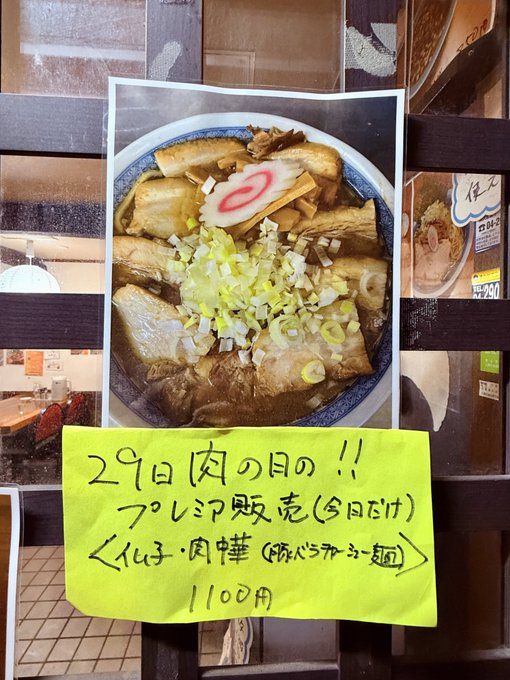 29日肉の日の!!
プレミア販売(今日だけ)
<仏子・肉中華(豚バラチャーシュー麺)>
1100円
TEL
290